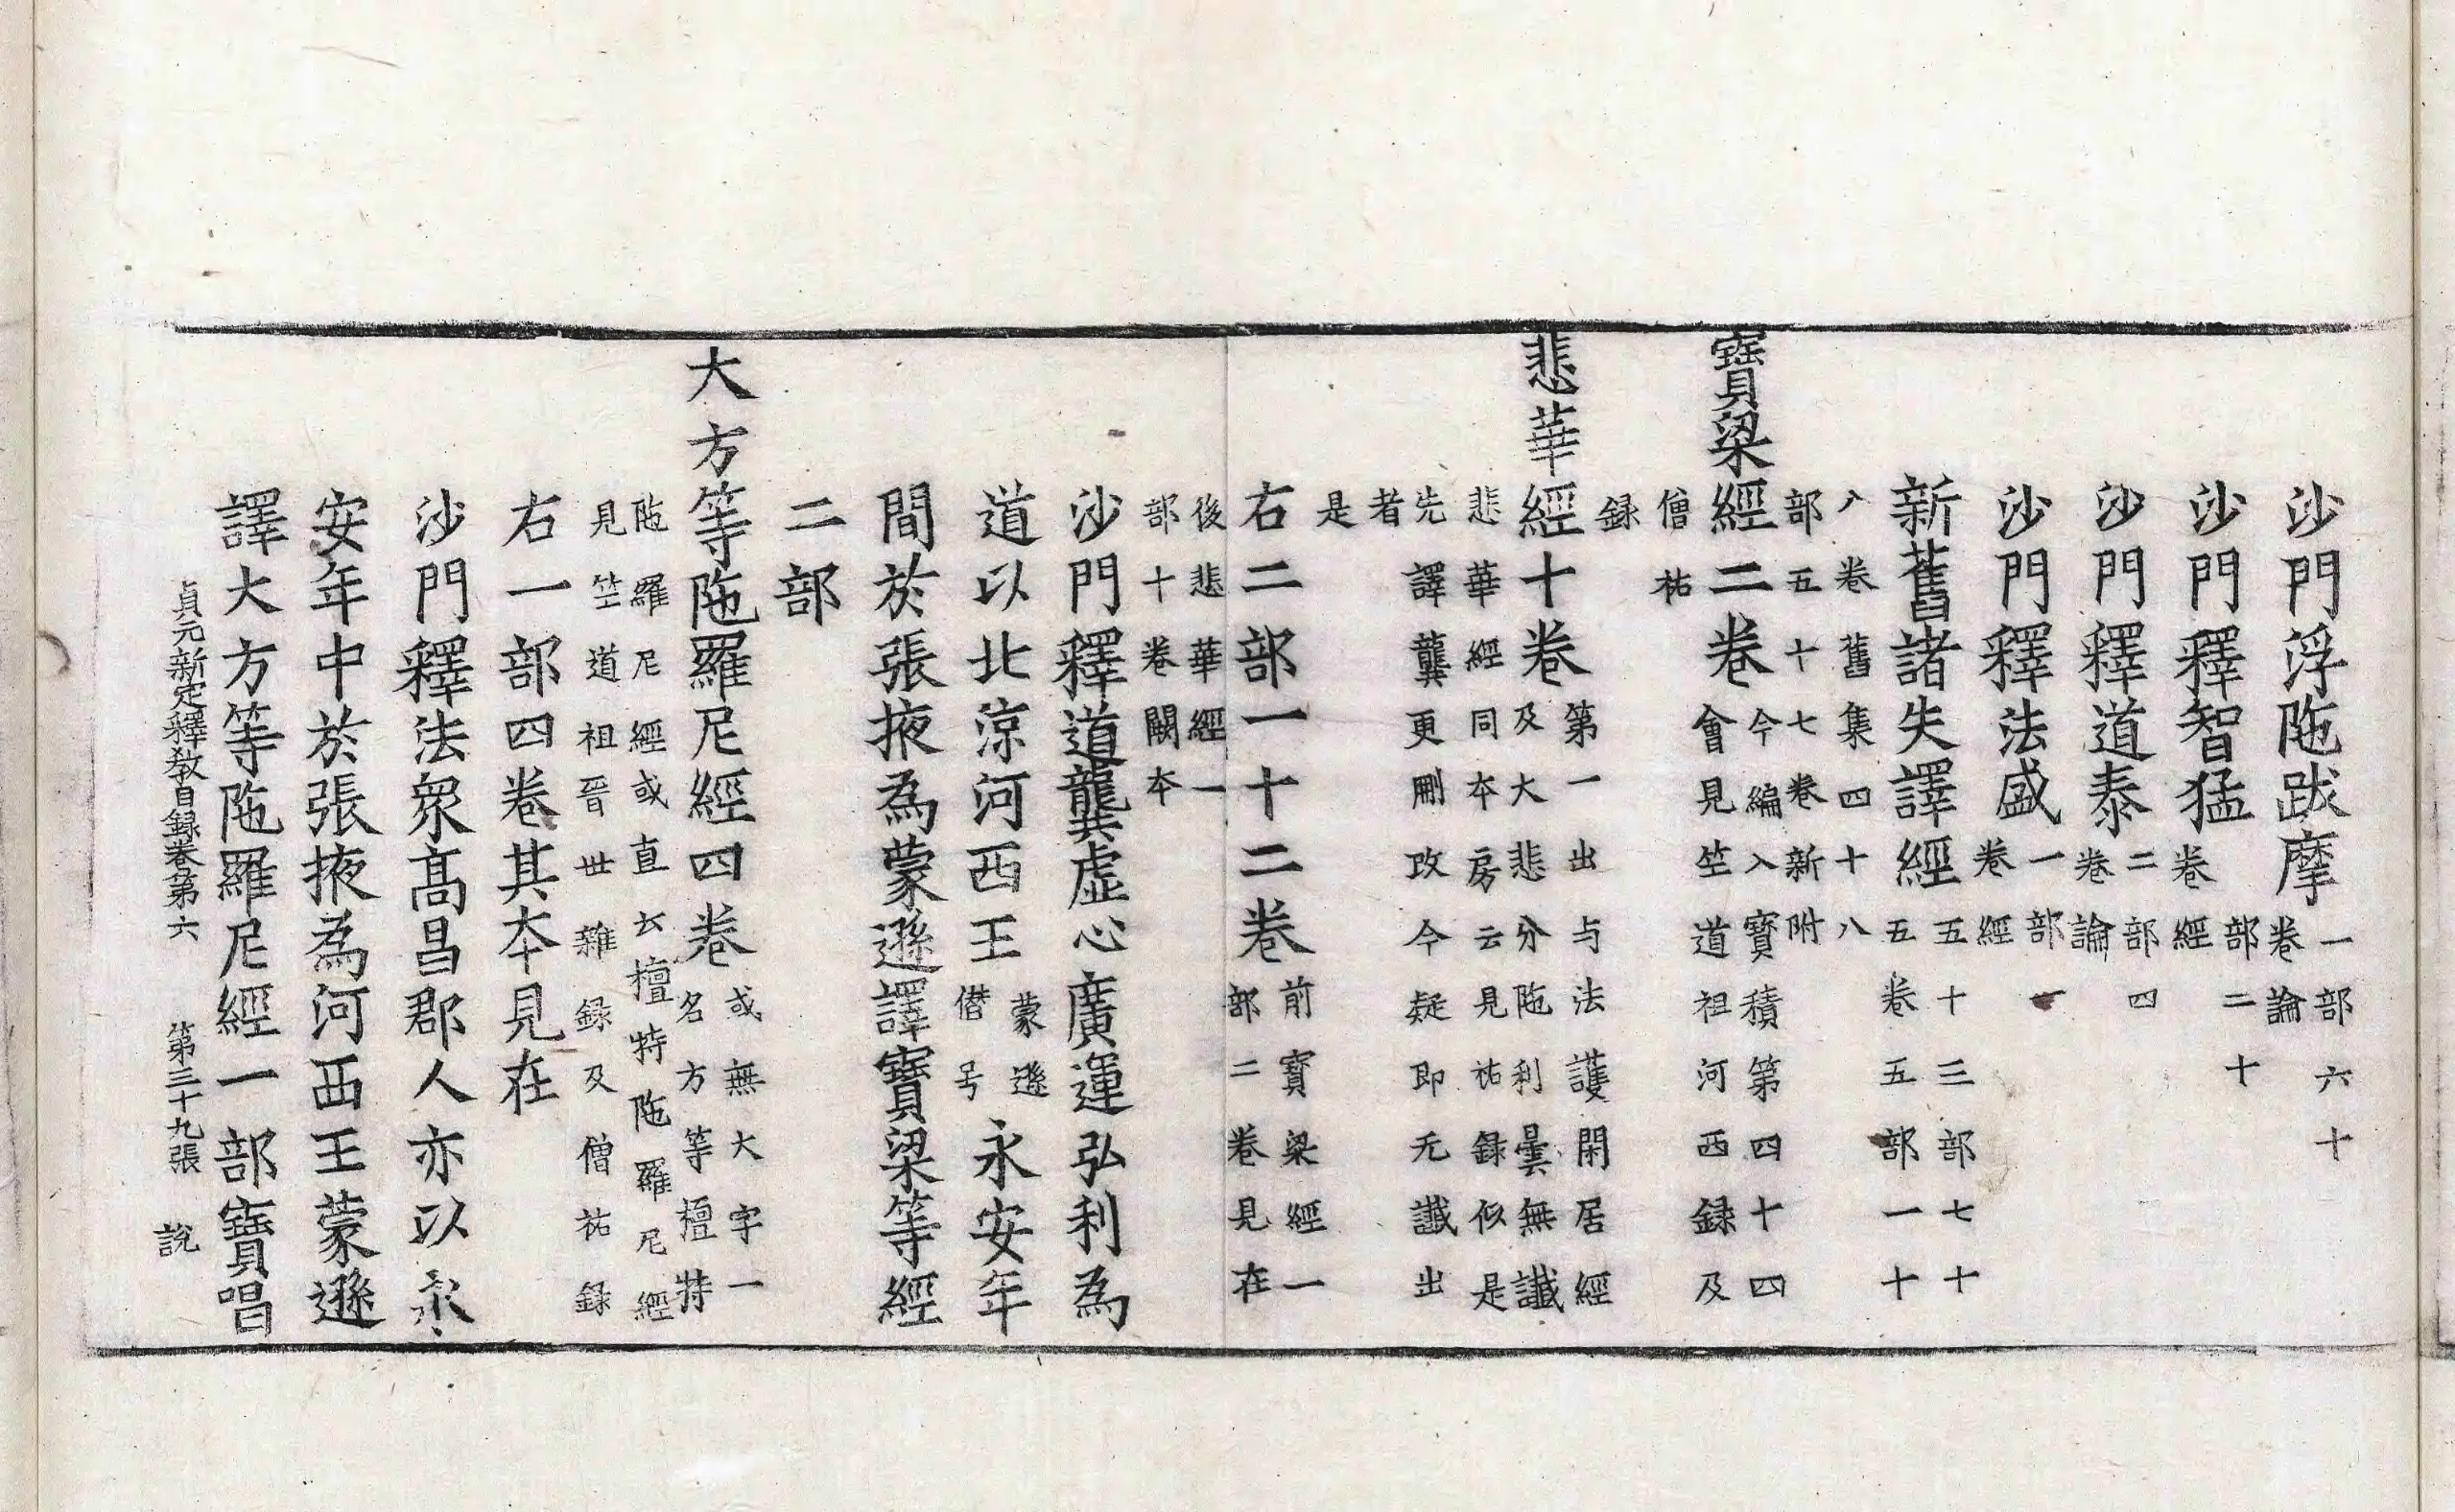 沙門浮陁跋摩一部六十卷論
沙門釋智猛部二十卷經
沙門釋道泰二部四卷論
沙門釋法盛一部一卷經
新舊諸失譯經五十三部七十五卷五部一十
八卷舊集四十八部五十七卷新附
寶梁經二卷今編入寶積第四十四會見竺道祖河西録及
僧祐録
悲華經十卷第一出与法護閑居經及大悲分陁利曇無讖
悲華經同本房云見祐録似是先譯龔更刪改今疑即无讖出
者是
右二部一十二卷前寶梁經一部二卷見在
後悲華經一部十卷闕本
沙門釋道龔虛心廣運弘利為
道以北涼河西王蒙遜僣号永安年
間於張掖為蒙遜譯寶梁等經
二部
大方等陁羅尼經四卷或無大字一名方等檀特
陁羅尼經或直云檀特陁羅尼經見竺道祖晉世雜録及僧祐録
右一部四卷其本見在
沙門釋法衆髙昌郡人亦以永
安年中於張掖為河西王蒙遜
譯大方等陁羅尼經一部寶唱
貞元新定釋教目録卷第六 第三十九張 說